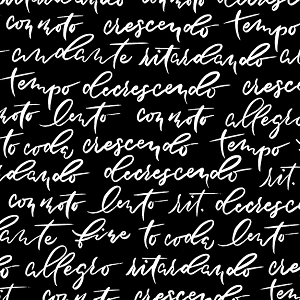 ritardando con moto
con moto crescendo tempo
andante ritardando
tempo decrescendo cresc
moto lento con moto allegro
to coda crescendo tempo
ardando decrescendo rit
con moto lento rit. decresc
dante fine to coda lento
do allegro ritardando
to con moto crescendo